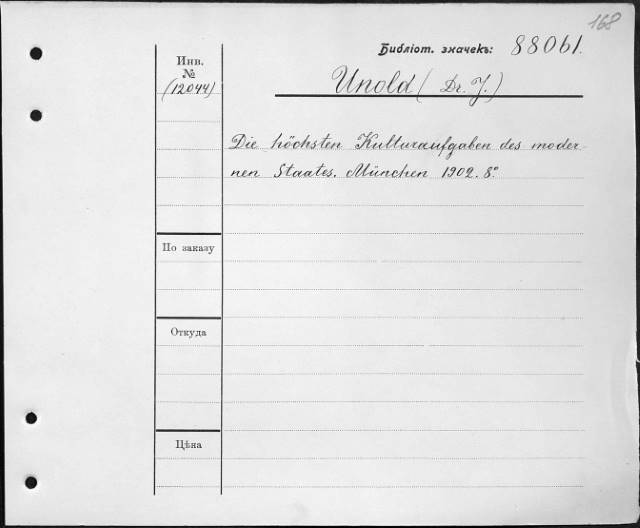 168
Библіот. значекъ: 88061.
Инв.
№
(12044)
Unold (Dr. J.)
Die höchsten Kulturaufgaben des moder-
nen Staates. München 1902. 8º.
По заказу
Откуда
Цѣна